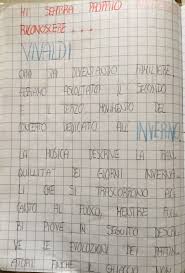 MI SEMBRA PROPRIO
RICONOSCERE . . . .
VIVALDI
ORA STA DIVENTANDO FAMILIARE,
ABBIAMO ASCOLTATO IL SECONDO
TERZO MOVIMENTO DEL
CONCERTO DEDICATO ALL' INVERNO.
LA MUSICA DESCRIVE LA TRAN
QUILLITA' DEI GIORNI INVERNA
LI CHE SI TRASCORRONO AC
CANTO AL FUOCO, MENTRE FUO
RI PIOVE IN SEGUITO DESCRI
VE LE EVOLUZIONI DEI PATTIN
ATORI FINCHE' IL GHIACCIO NON